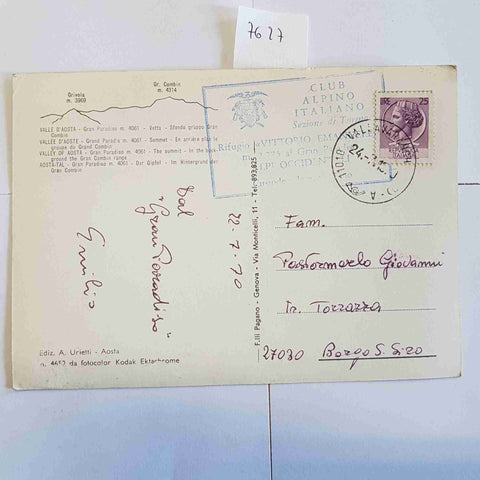 7627
Grivola
m. 3969
Gr. Combin
m. 4314
VALLE D'AOSTA - Gran Paradiso m. 4061 - Vetta - Sfondo gruppo Gran
Combin
VALLÉE D'AOSTE - Grand Paradis m. 4061 - Sommet - En arrière plan le
groupe du Grand Combin
VALLEY OF AOSTA - Gran Paradiso m. 4061 - The summit - In the back
ground the Gran Combin range
AOSTA-TAL - Gran Paradiso m. 4061 - Der Gipfel - Im Hintergrund der
Gran Combin
CLUB
ALPINO
ITALIANO
Sezione di
Rifugio «VITTORIO
al Gran
OCCIDENT
LIRE 25
11010
24-7
Dal
"Gran Paradiso"
Emilio
22-7-70
F.lli Pagano - Genova - Via Monticelli, 11 - Tel. 893.825
Fam.
Giovanni
Torrazza
27030 Borgo S. Siro
Ediz. A. Urietti - Aosta
n. 4652 da fotocolor Kodak Ektachrome